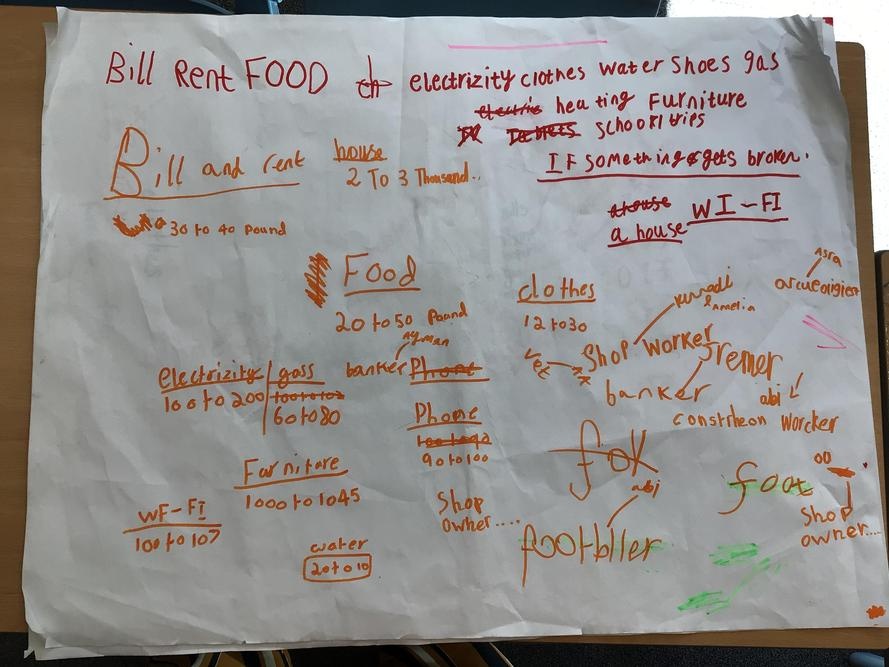 Bill Rent FOOD electrizity clothes water shoes gas
electric heating Furniture
Tablets schoorl trips
IF something gets broken.
Bill and rent
house
2 To 3 Thousand..
30 to 40 Pound
a house WI-FI
a house
Food
20 to 50 Pound
clothes
12 to 30
kuwadi
Asra
Shop worker
vet
ayman
banker Phone
electrizity gass
100 to 200
60 to 80
banker
abi
constrheon worcker
Phome
90 to 100
Farnitare
1000 to 1045
WF-FI
100 to 107
Shop
owner....
water
20 to 10
fok
abi
footbller
foot
Shop
owner....